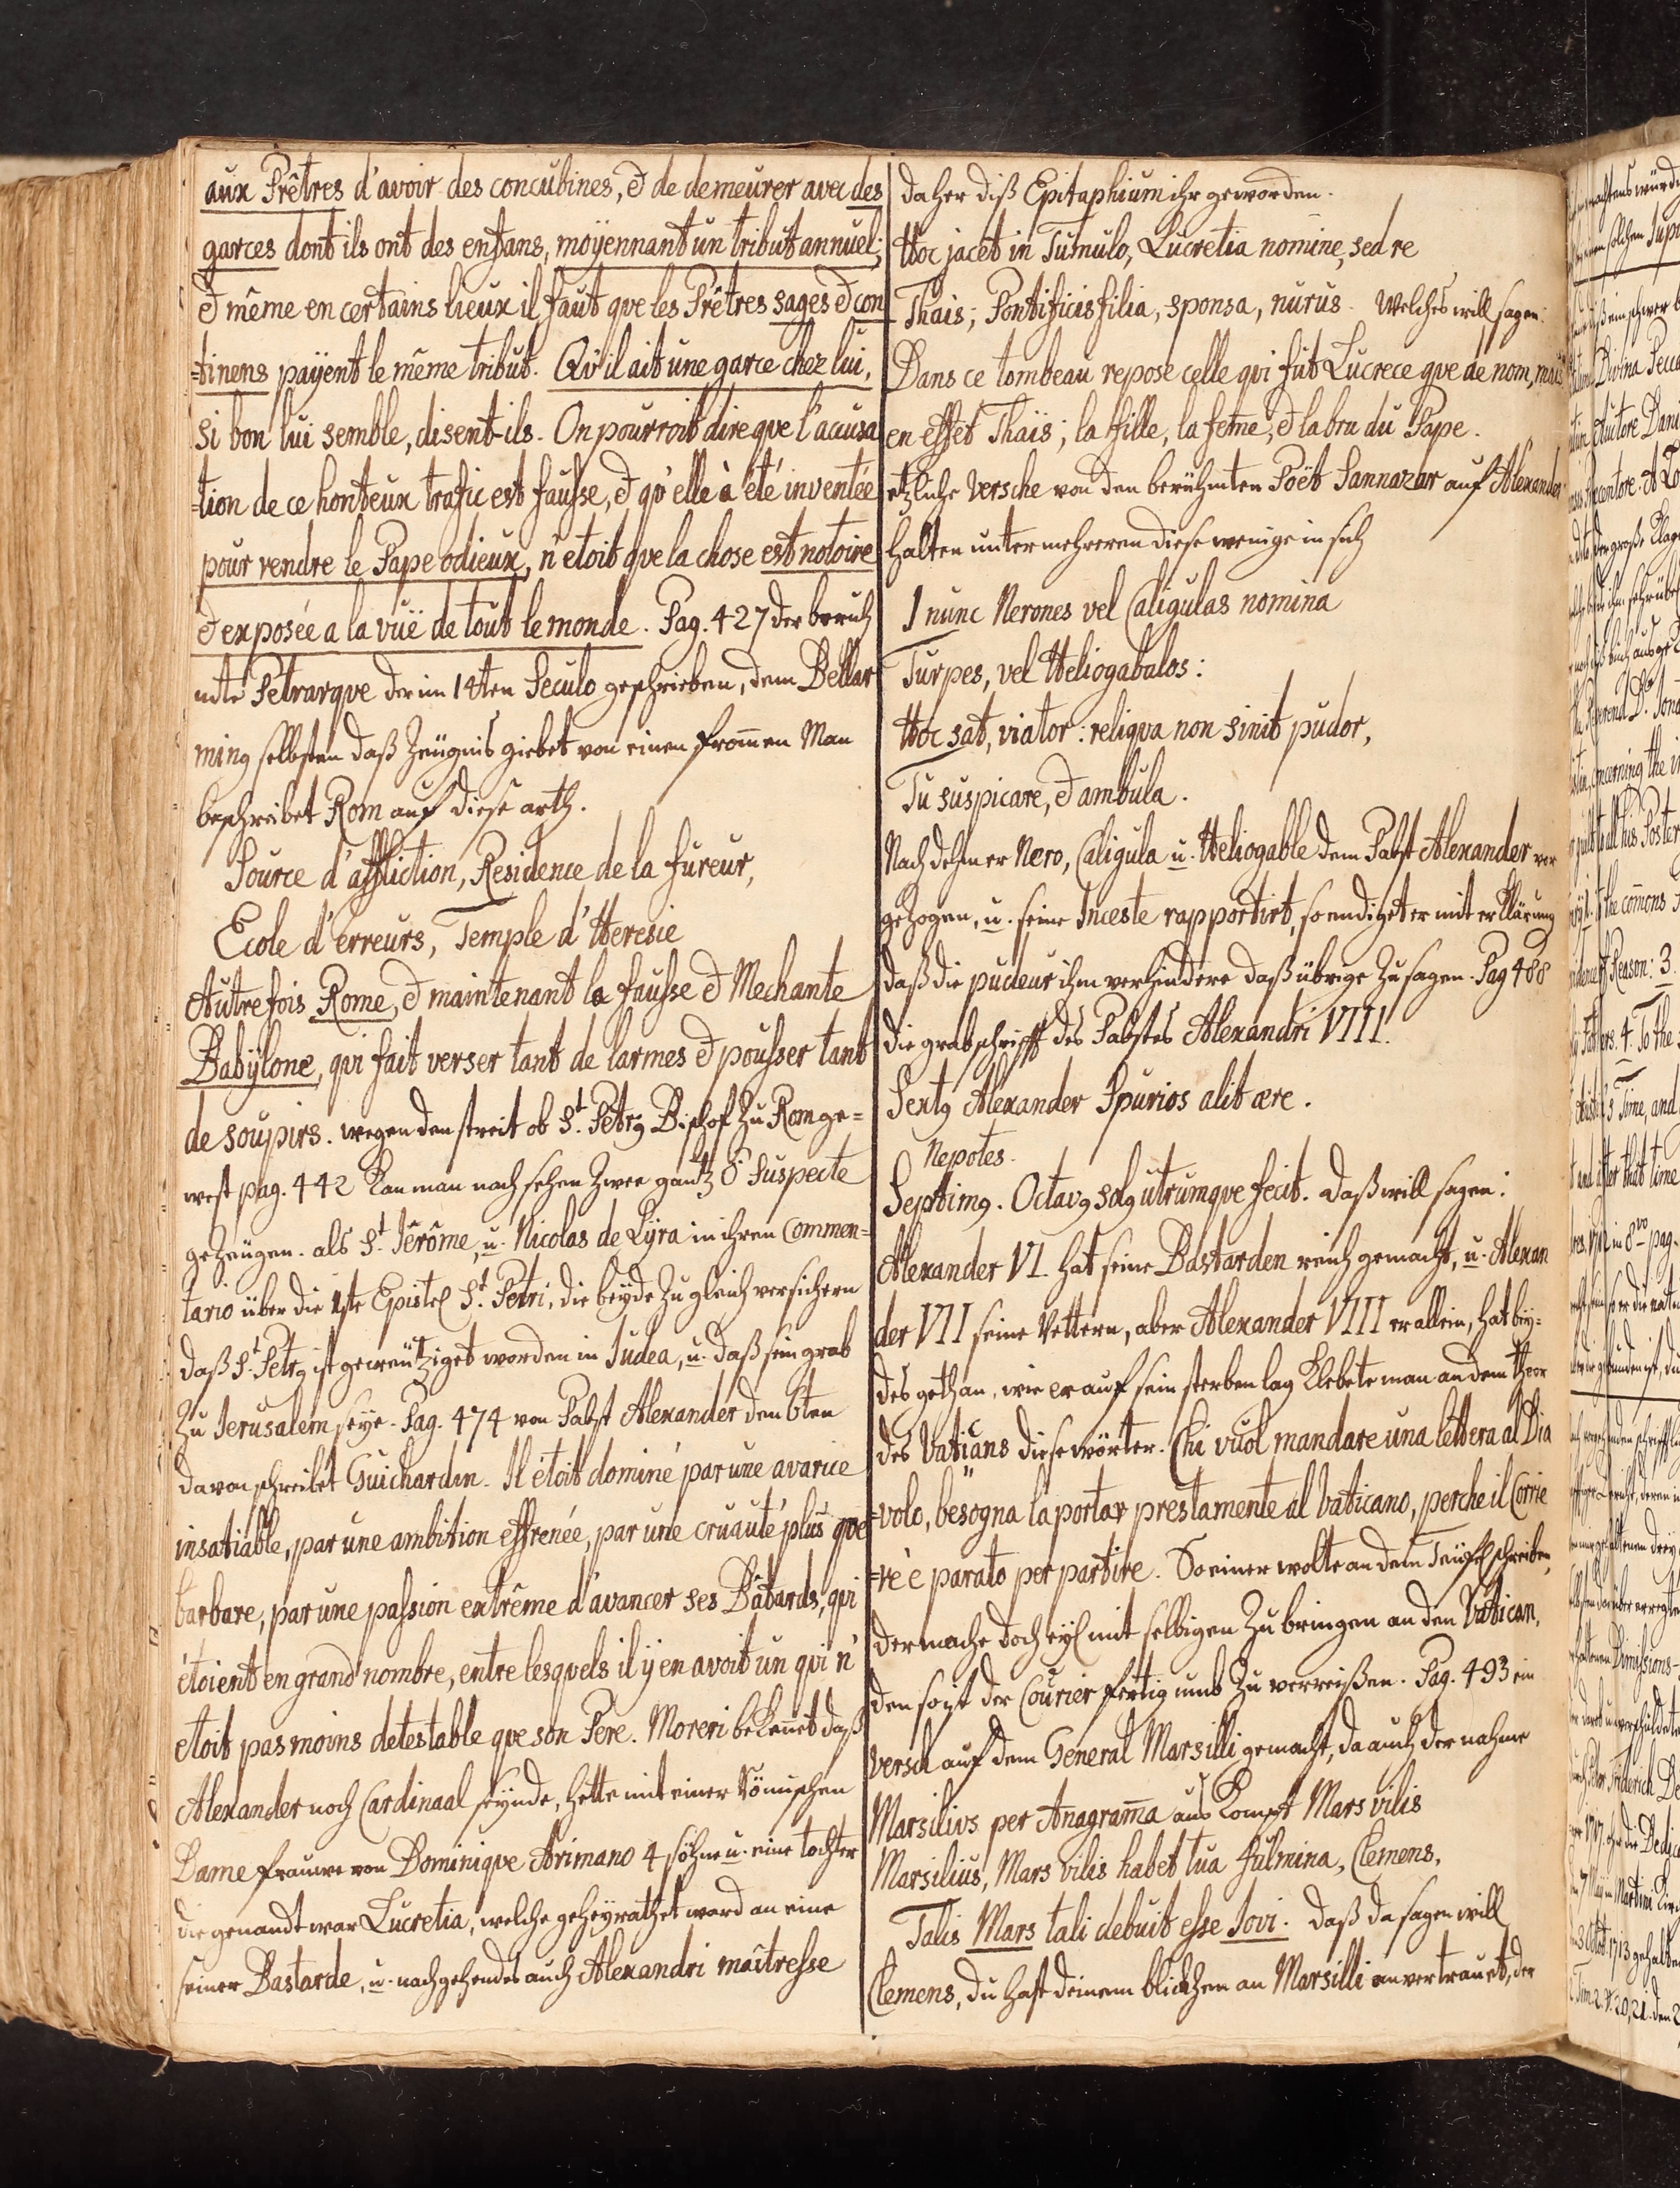 aux Prêtres d'avoir des concubines, & de demeurer avec des
garces dont ils ont des enfans, moÿennant un tribut annuel;
& même en certains lieux il faut que les Prêtres sages & con
=tinens paÿent le même tribut. Qu'il ait une garce chez lui,
si bon lui semble, disent-ils. On pourroit dire que l'accusa
=tion de ce honteux trafic est fausse, & qu'elle à été inventée
pour rendre le Pape odieux, n'etoit que la chose est notoire
& exposée a la vuë de tout le monde. Pag. 427 der berüh
mte Petrarque der im 14ten Seculo geschrieben, dem Bellar
ming selbsten daß Zeügnis giebet von einen frommen Man
beschreibet Rom auf diese arth.
Source d'affliction, Residence de la fureur,
Ecole d'erreurs, Temple d'Heresie
Autrefois Rome, & maintenant la fausse & Mechante
Babÿlone, qui fait verser tant de larmes & pousser tant
de soupirs. wegen den streit ob St. Petrg Bischof zu Rom ge=
west pag. 442 Kan man nach sehen zwee gantz Ö Suspecte
gezeügen. als St. Jêrôme, u. Nicolas de Lÿra in ihren Commen=
tario über die 1ste Epistel St. Petri, die beÿde zu gleich versichern
daß St. Petrg ist gecreütziget worden in Judea, u. daß sein grab
zu Jerusalem seÿe. Pag. 474 von Pabst Alexander den 6ten
davon schreibet Guichardin. Il étoit dominé par une avarice
insatiable, par une ambition effrenée, par une cruauté plus que
barbare, par une passion extrême d'avancer ses Bâtards, qui
étoient en grand nombre, entre lesquels il ÿ en avoit un qui n'
etoit pas moins detestable que son Pere. Moreri bekennet daß
Alexander noch Cardinaal seÿnde, hette mit einer Römischen
Dame frauwe von Dominique Arimano 4 söhne u. eine tochter
die genandt war Lucretia, welche geheÿrathet ward an eine
seiner Bastarde, u. nachgehendes auch Alexandri maîtresse
daher diß Epitaphium ihr geworden.
Hoc jacet in Tumulo, Lucretia nomine, sed re
Thais; Pontificis filia, sponsa, nurus. Welches will sagen:
Dans ce tombeau repose celle qui fut Lucrece que de nom, mais
en effet Thaïs; la fille, la feme, & la bru du Pape.
etzliche Versche von den berühmten Poët Sannazar auf Alexander
halten unter mehreren diese wenige in sich
I nunc Nerones vel Caligulas nomina
Turpes, vel Heliogabalos:
Hoc sat, viator: reliqva non sinit pudor,
Tu suspicare, & ambula.
Nach dehm er Nero, Caligula u. Heliogable dem Pabst Alexander vor
gezogen, u. seine Inceste rapportirt, so endiget er mit erklärung
daß die pudeur ihm verhindere daß übrige zu sagen. Pag 488
die grabschrifft des Pabstes Alexandri VIII.
Sextg Alexander Spurios alit ære.
Nepotes.
Septimg. Octavg solg utrumque fecit. Daß will sagen:
Alexander VI. hat seine Bastarden reich gemacht, u. Alexan
der VII seine Vettern, aber Alexander VIII er allein, hat beÿ=
des gethan, wie er auf sein sterben lag Klebete man an dem thor
des Vaticans diese wörter. Chi vuol mandare una lettera al Dia
=volo, besogna la portar prestamente al Vaticano, perche il Corrie
=re è parato per partire. So einer wolte an dem Teüfel schreiben,
der mache doch eÿl mit selbigen zu bringen an den Vatican,
den so ist der Courier fertig umb zu verreißen. Pag. 493 ein
Versch auf dem General Marsilli gemacht, da auch der nahme
Marsilivs per Anagramma aus kompt Mars vilis
Marsilius, Mars vilis habet tua fulmina, Clemens,
Talis Mars tali debuit esse Jovi. Daß da sagen will
Clemens, du hast deinem blickhen an Marsilli anvertrauet, der